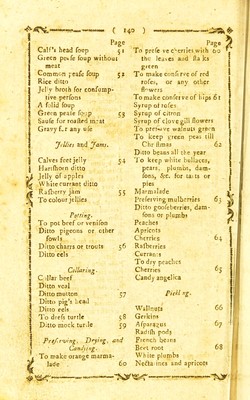 ( 140 )
Page
Calf's head soup 51
Green pease soup without
meat
Common pease soup 52
Rice ditto
Jelly broth for consump-
tive persons
A solid soup
Green pease soup 53
Sauce for roasted meat
Gravy for any use
Jellies and Jams.
Calves feet jelly 54
Hartshorn ditto
Jelly of apples
White currant ditto
Rasberry jam 55
To colour jellies
Potting.
To pot beef or venison
Ditto pigeons or other
fowls
Ditto charrs or trouts 56
Ditto eels
Collaring.
Collar beef
Ditto veal
Ditto mutton 57
Ditto pig's head
Ditto eels
To dress turtle 58
Ditto mock turtle 59
Preserving, Drying, and
Candying.
To make orange marma-
lade 60
Page
To preserve cherries with 60
the leaves and stalks
green
To make conserve of red
roses, or any other
flowers
To make conserve of hips 61
Syrup of roses
Syrup of citron
Syrup of clove gill flowers
To preserve walnuts green
To keep green peas till
Christmas 62
Ditto beans all the year
To keep white bullaces,
pears, plumbs, dam-
sons, &c. for tarts or
pies
Marmalade
Preserving mulberries 63
Ditto gooseberries, dam-
sons or plumbs
Peaches
Apricots
Cherries 64
Rasberries
Currants
To dry peaches
Cherries 65
Candy angelica
Pickling.
Wallnuts 66
Gerkins
Asparagus 67
Radish pods
French beans
Beet root 68
White plumbs
Nectarines and apricots